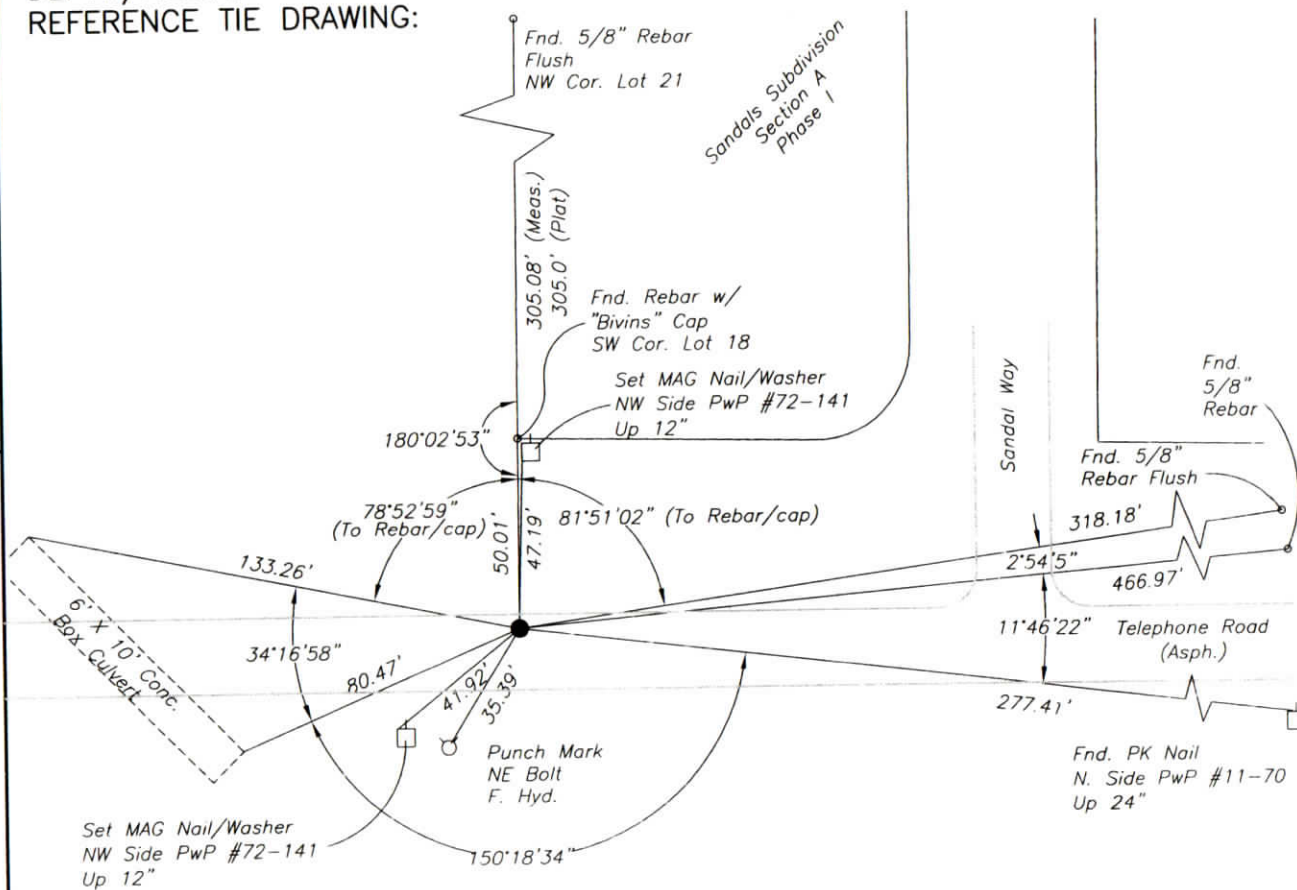 REFERENCE TIE DRAWING:
Fnd. 5/8" Rebar
Flush
NW Cor. Lot 21
Sandals Subdivision
Section A
Phase I
305.08' (Meas.)
305.0' (Plat)
Fnd. Rebar w/
"Bivins" Cap
SW Cor. Lot 18
Set MAG Nail/Washer
NW Side PwP #72-141
Up 12"
Sandal Way
Fnd.
5/8"
Rebar
Fnd. 5/8"
Rebar Flush
180°02'53"
78°52'59"
(To Rebar/cap)
50.01'
47.19'
81°51'02" (To Rebar/cap)
318.18'
2°54'5"
466.97'
133.26'
6' X 10' Conc.
Box Culvert
34°16'58"
80.47'
41.92'
35.39'
11°46'22"
Telephone Road
(Asph.)
277.41'
Punch Mark
NE Bolt
F. Hyd.
Fnd. PK Nail
N. Side PwP #11-70
Up 24"
Set MAG Nail/Washer
NW Side PwP #72-141
Up 12"
150°18'34"